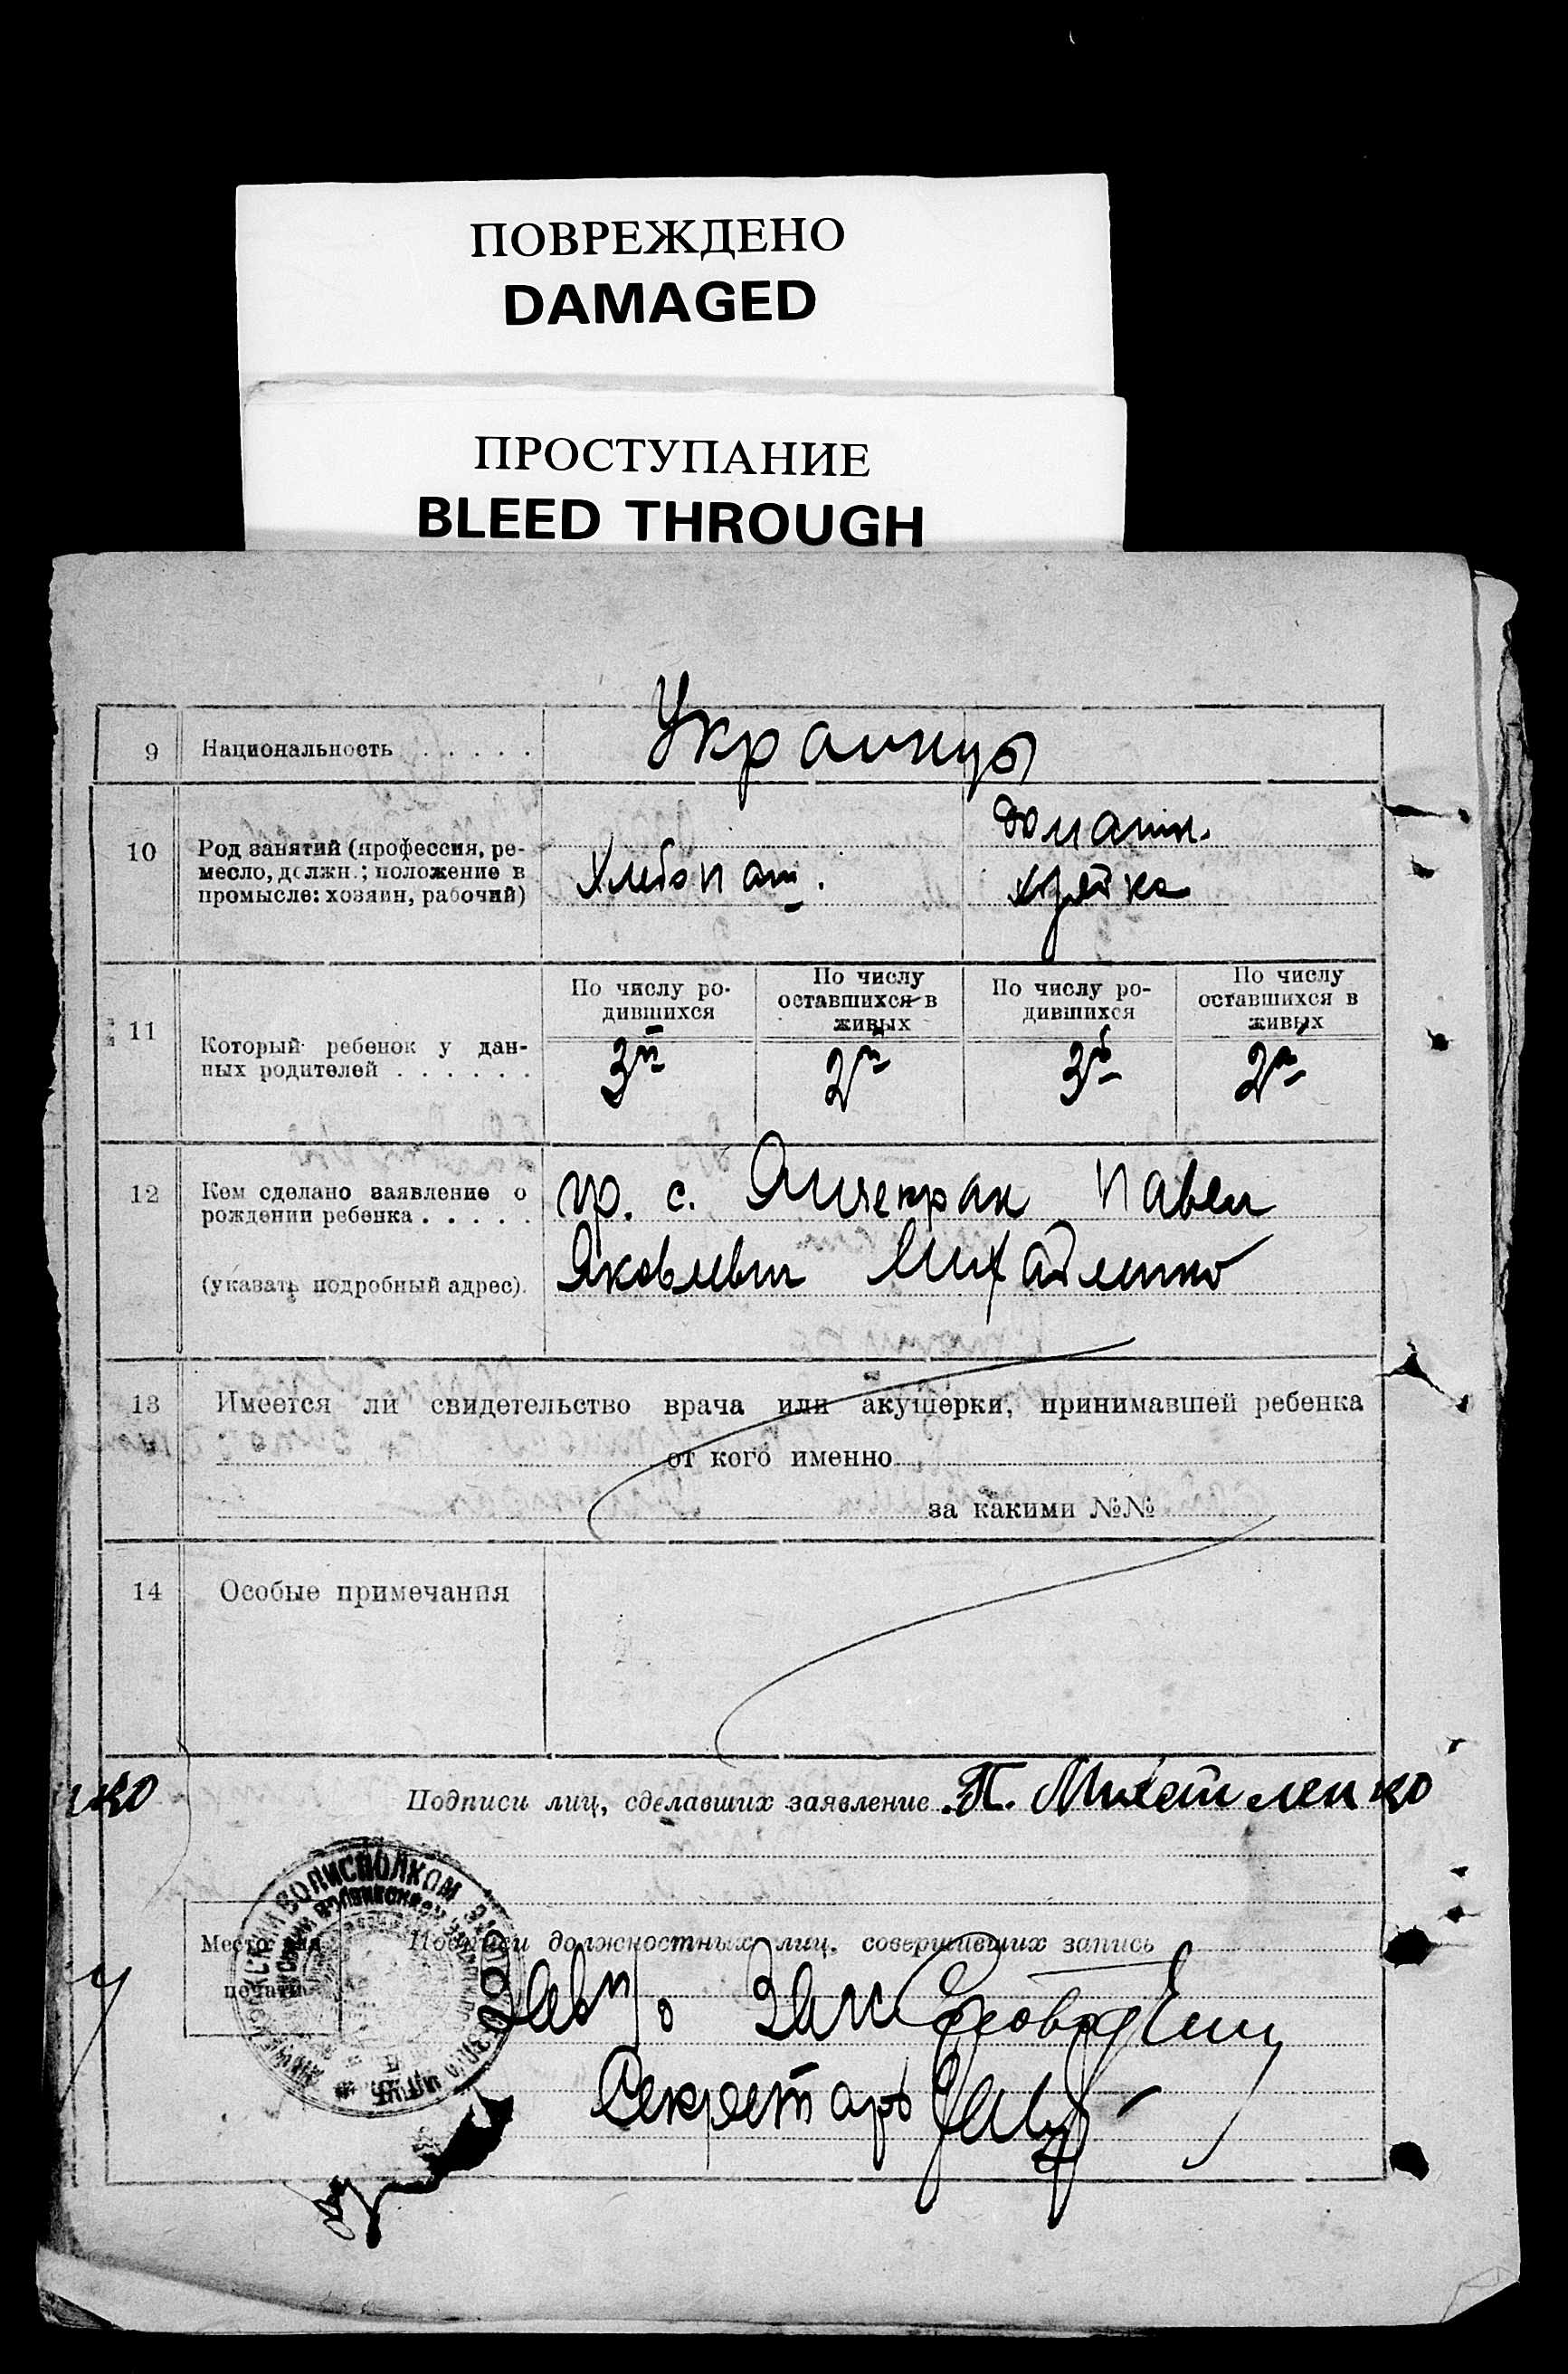 ПОВРЕЖДЕНО
DAMAGED
ПРОСТУПАНИЕ
BLEED THROUGH
9 Национальность . . . . . Украинцы
10 Род занятий (профессия, ре-
месло, должн.; положение в
промысле: хозяин, рабочий)
Хлебопаш.
домашн.
хозяйка
11 Который ребенок у дан-
ных родителей . . . . . .
По числу ро-
дившихся
3й
По числу
оставшихся в
живых
2й
По числу ро-
дившихся
3й
По числу
оставшихся в
живых
2й
12 Кем сделано заявление о
рождении ребенка . . . . .
(указать подробный адрес).
гр. с. Янчекрак Павел
Яковлевич Михайленко
13 Имеется ли свидетельство врача или акушерки, принимавшей ребенка
от кого именно
за какими №№
14 Особые примечания
нко
Подписи лиц, сделавших заявление П. Михайленко
ВОЛИСПОЛКОМ
Место для
печати
Подписи должностных лиц, совершивших запись
Секретарь